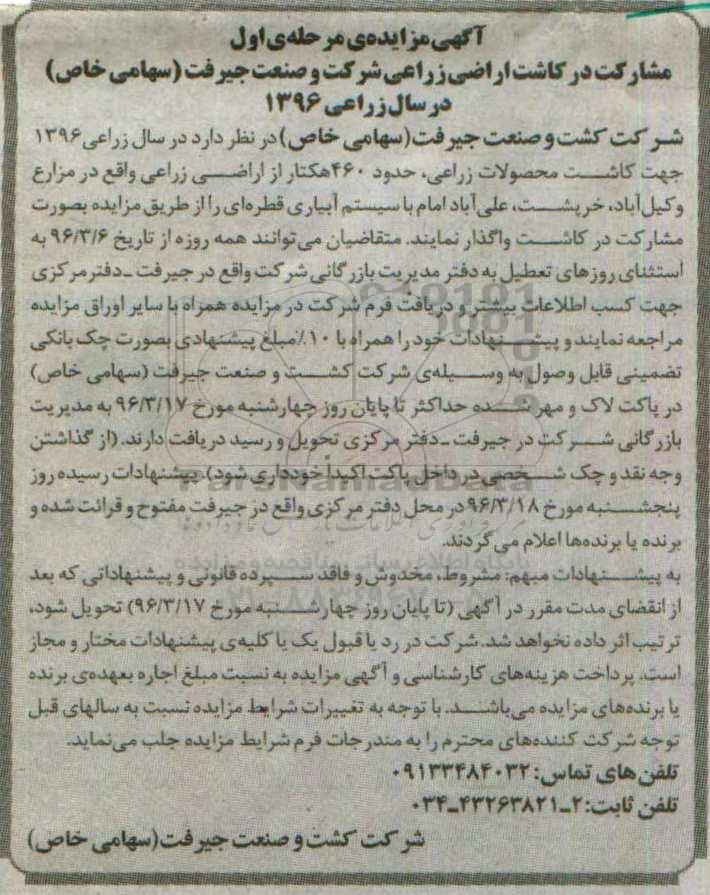 آگهی مزایده‌ی مرحله‌ی اول
مشارکت در کاشت اراضی زراعی شرکت و صنعت جیرفت (سهامی خاص)
در سال زراعی ۱۳۹۶
شرکت کشت و صنعت جیرفت (سهامی خاص) در نظر دارد در سال زراعی ۱۳۹۶
جهت کاشت محصولات زراعی، حدود ۴۶۰هکتار از اراضی زراعی واقع در مزارع
وکیل‌آباد، خرپشت، علی‌آباد امام با سیستم آبیاری قطره‌ای را از طریق مزایده بصورت
مشارکت در کاشت واگذار نمایند. متقاضیان می‌توانند همه روزه از تاریخ ۹۶/۳/۶ به
استثنای روزهای تعطیل به دفتر مدیریت بازرگانی شرکت واقع در جیرفت ـ دفتر مرکزی
جهت کسب اطلاعات بیشتر و دریافت فرم شرکت در مزایده همراه با سایر اوراق مزایده
مراجعه نمایند و پیشنهادات خود را همراه با ۱۰٪ مبلغ پیشنهادی بصورت چک بانکی
تضمینی قابل وصول به وسیله‌ی شرکت کشت و صنعت جیرفت (سهامی خاص)
در پاکت لاک و مهر شده حداکثر تا پایان روز چهارشنبه مورخ ۹۶/۳/۱۷ به مدیریت
بازرگانی شرکت در جیرفت ـ دفتر مرکزی تحویل و رسید دریافت دارند. (از گذاشتن
وجه نقد و چک شخصی در داخل پاکت اکیداً خودداری شود). پیشنهادات رسیده روز
پنجشنبه مورخ ۹۶/۳/۱۸ در محل دفتر مرکزی واقع در جیرفت مفتوح و قرائت شده و
برنده یا برنده‌ها اعلام می‌گردند.
به پیشنهادات مبهم، مشروط، مخدوش و فاقد سپرده قانونی و پیشنهاداتی که بعد
از انقضای مدت مقرر در آگهی (تا پایان روز چهارشنبه مورخ ۹۶/۳/۱۷) تحویل شود،
ترتیب اثر داده نخواهد شد. شرکت در رد یا قبول یک یا کلیه‌ی پیشنهادات مختار و مجاز
است. پرداخت هزینه‌های کارشناسی و آگهی مزایده به نسبت مبلغ اجاره بعهده‌ی برنده
یا برنده‌های مزایده می‌باشند. با توجه به تغییرات شرایط مزایده نسبت به سالهای قبل
توجه شرکت کننده‌های محترم را به مندرجات فرم شرایط مزایده جلب می‌نماید.
تلفن‌های تماس: ۰۹۱۳۳۴۸۴۰۳۲
تلفن ثابت: ۲ـ۴۳۲۶۳۸۲۱ـ۰۳۴
شرکت کشت و صنعت جیرفت (سهامی خاص)